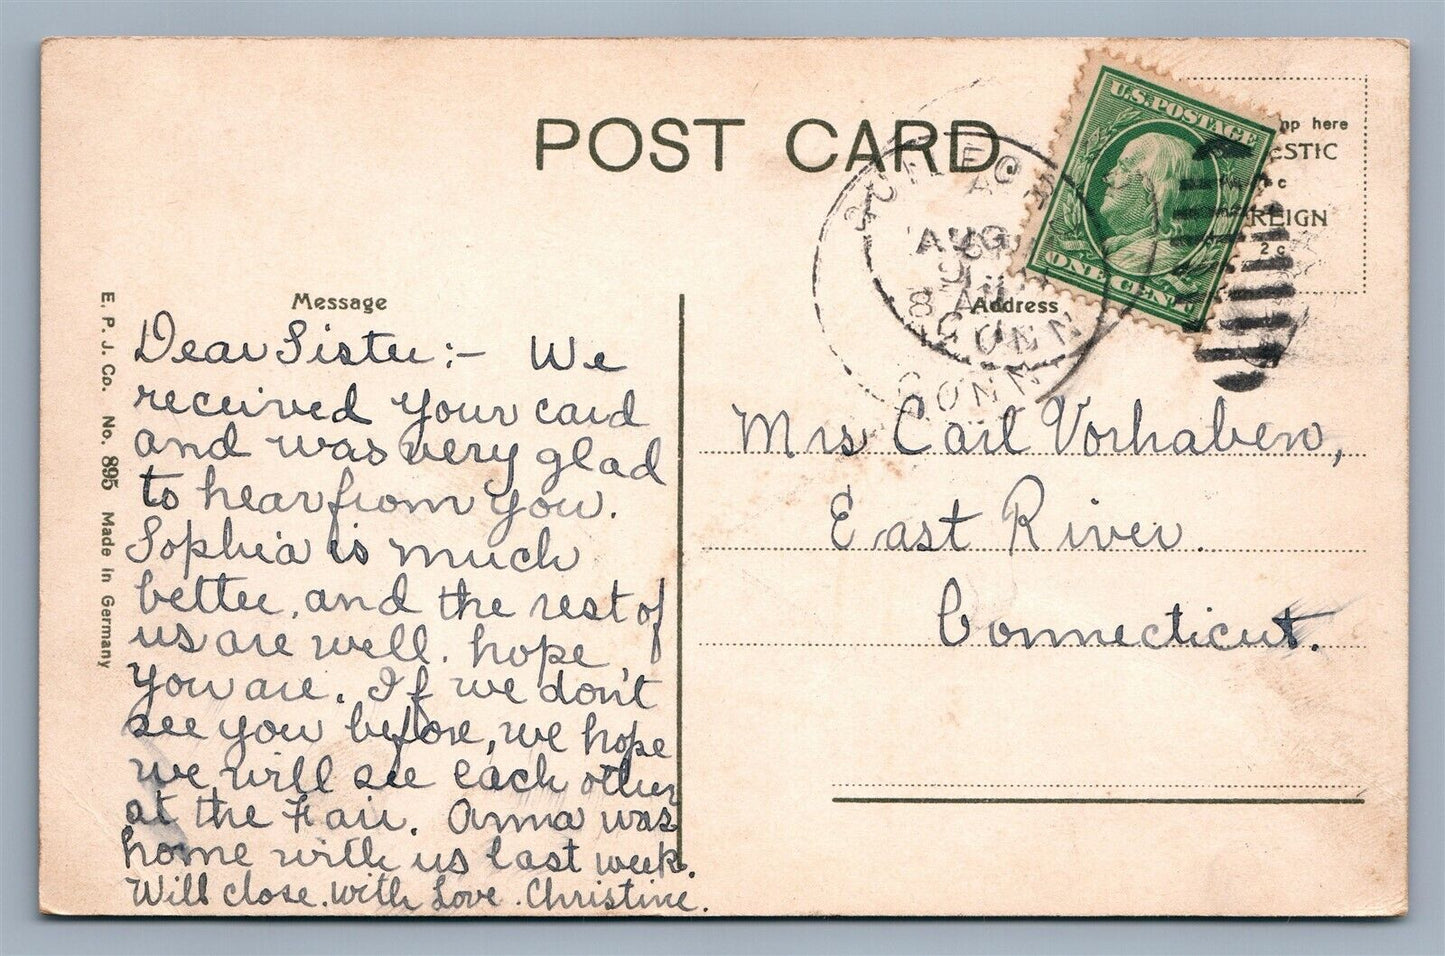 POST CARD.
U.S. POSTAGE
ONE CENT
here
REIGN
2 c
AUG
8 A
CONN
CONN
Message
Address
E. P. J. Co. No. 895 Made in Germany
Dear Sister:- We
received your card
and was very glad
to hear from you.
Sophia is much
better, and the rest of
us are well. hope
you are. If we don't
see you before, we hope
we will see each other
at the Fair. Anna was
home with us last week.
Will close. with Love. Christine.
Mrs Carl Vorhaben,
East River.
Connecticut.